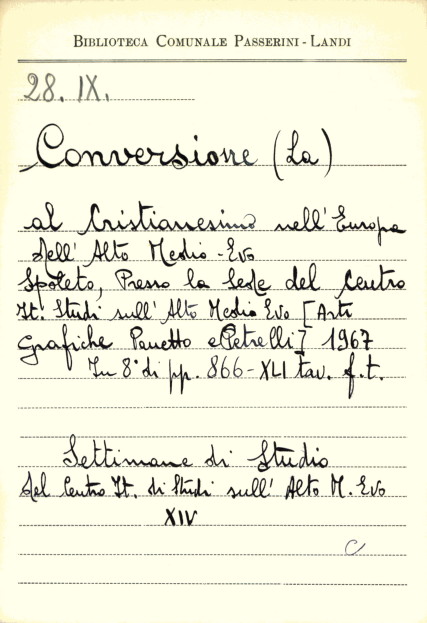 BIBLIOTECA COMUNALE PASSERINI - LANDI
28. IX.
Conversione (La)
al Cristianesimo nell'Europa
dell'Alto Medio-Evo
Spoleto, Presso la Sede del Centro
It. Studi sull'Alto Medio Evo [Arti
Grafiche Panetto e Petrelli] 1967
In 8° di pp. 866-XLI tav. f.t.
Settimane di Studio
del Centro It. di Studi sull'Alto M. Evo
XIV
C